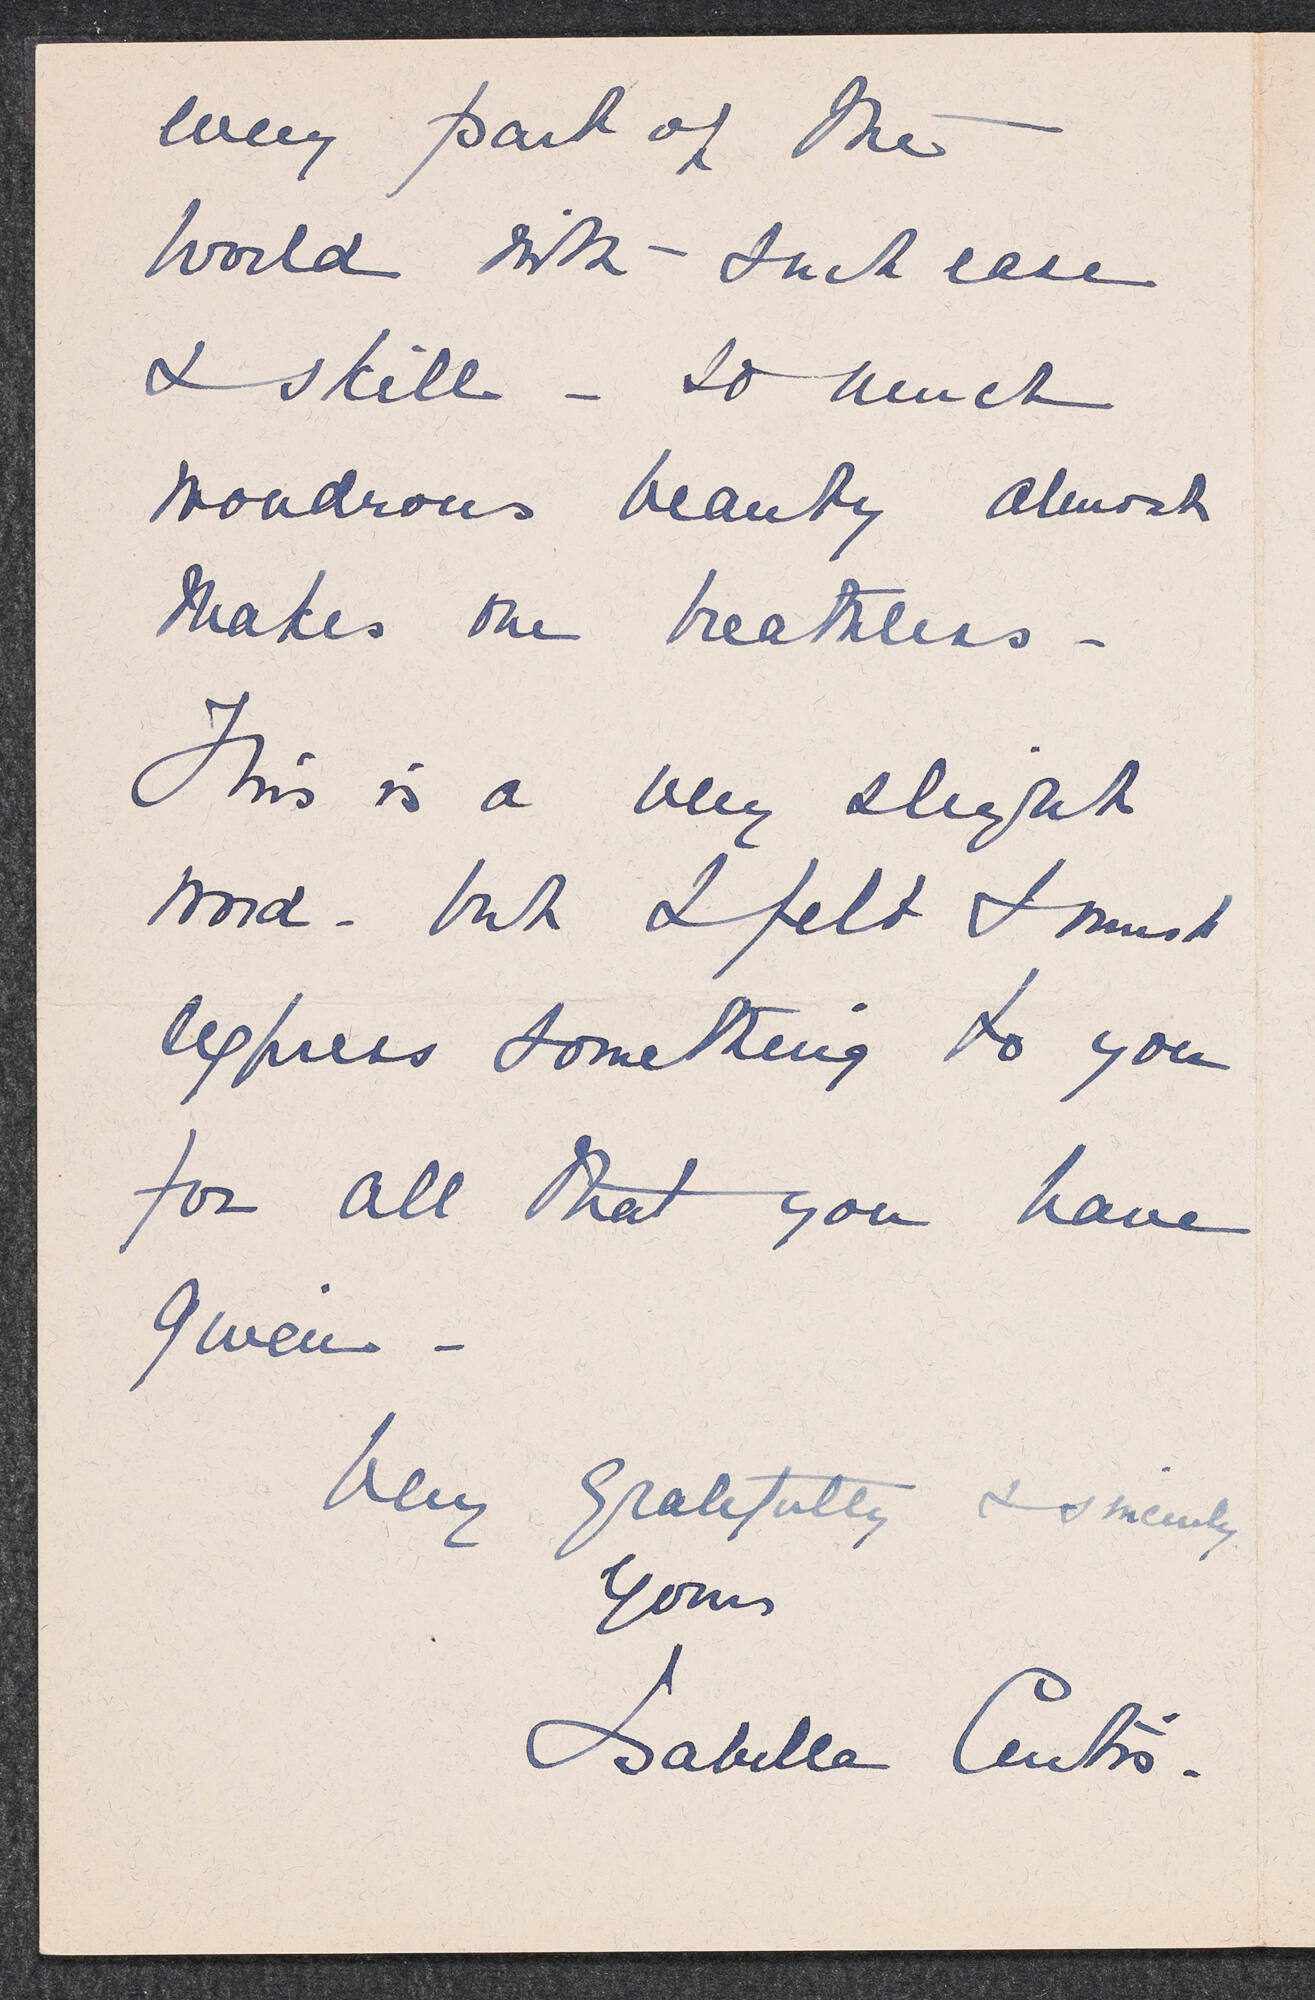 every part of the
world with - such ease
& skill - so much
wondrous beauty almost
makes one breathless -
This is a very slight
word - but I felt I must
express something to you
for all that you have
given -
Very gratefully & sincerely
yours
Isabella Curtis.